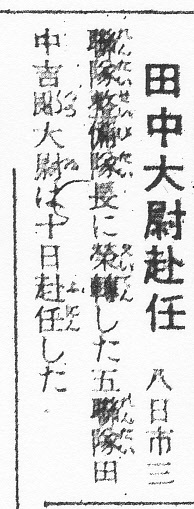 田中大尉赴任
八日市三
聯隊整備隊長に榮轉した五聯隊田
中吉郎大尉は十日赴任した